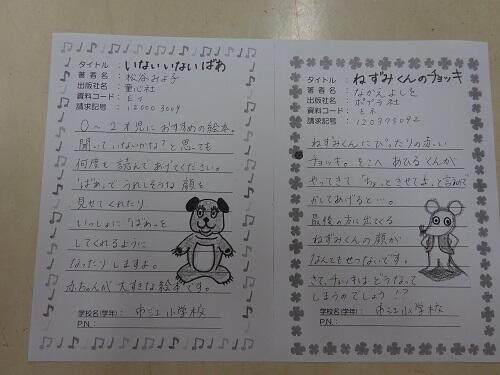 タイトル：いないいないばあ
著者名：松谷みよ子
出版社名：童心社
資料コード：E イ
請求記号：120003004
0～2才児におすすめの絵本。
聞いていないかな？と思っても
何度も読んであげてください。
"ばあ"でうれしそうな顔を
見せてくれたり
いっしょに"ばあ"っと
してくれるように
なったりしますよ。
赤ちゃんが大すきな絵本です。
学校名(学年)：市江小学校
P.N.：
タイトル：ねずみくんのチョッキ
著者名：なかえよしを
出版社名：ポプラ社
資料コード：E ネ
請求記号：120375042
ねずみくんにぴったりの赤い
チョッキ。そこへあひるくんが
やってきて「ちょっときせてよ」と言うので
かしてあげると…。
最後の方に出てくる
ねずみくんの顔が
なんともせつないです。
さて、チョッキはどうなって
しまうのでしょう！？
学校名(学年)：市江小学校
P.N.：